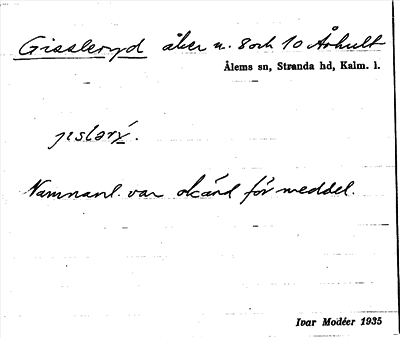 Gissleryd åker u. 8 och 10 Århult
Ålems sn, Stranda hd, Kalm. l.
jıslarý.
Namnanl. var okänd för meddel.
Ivar Modéer 1935